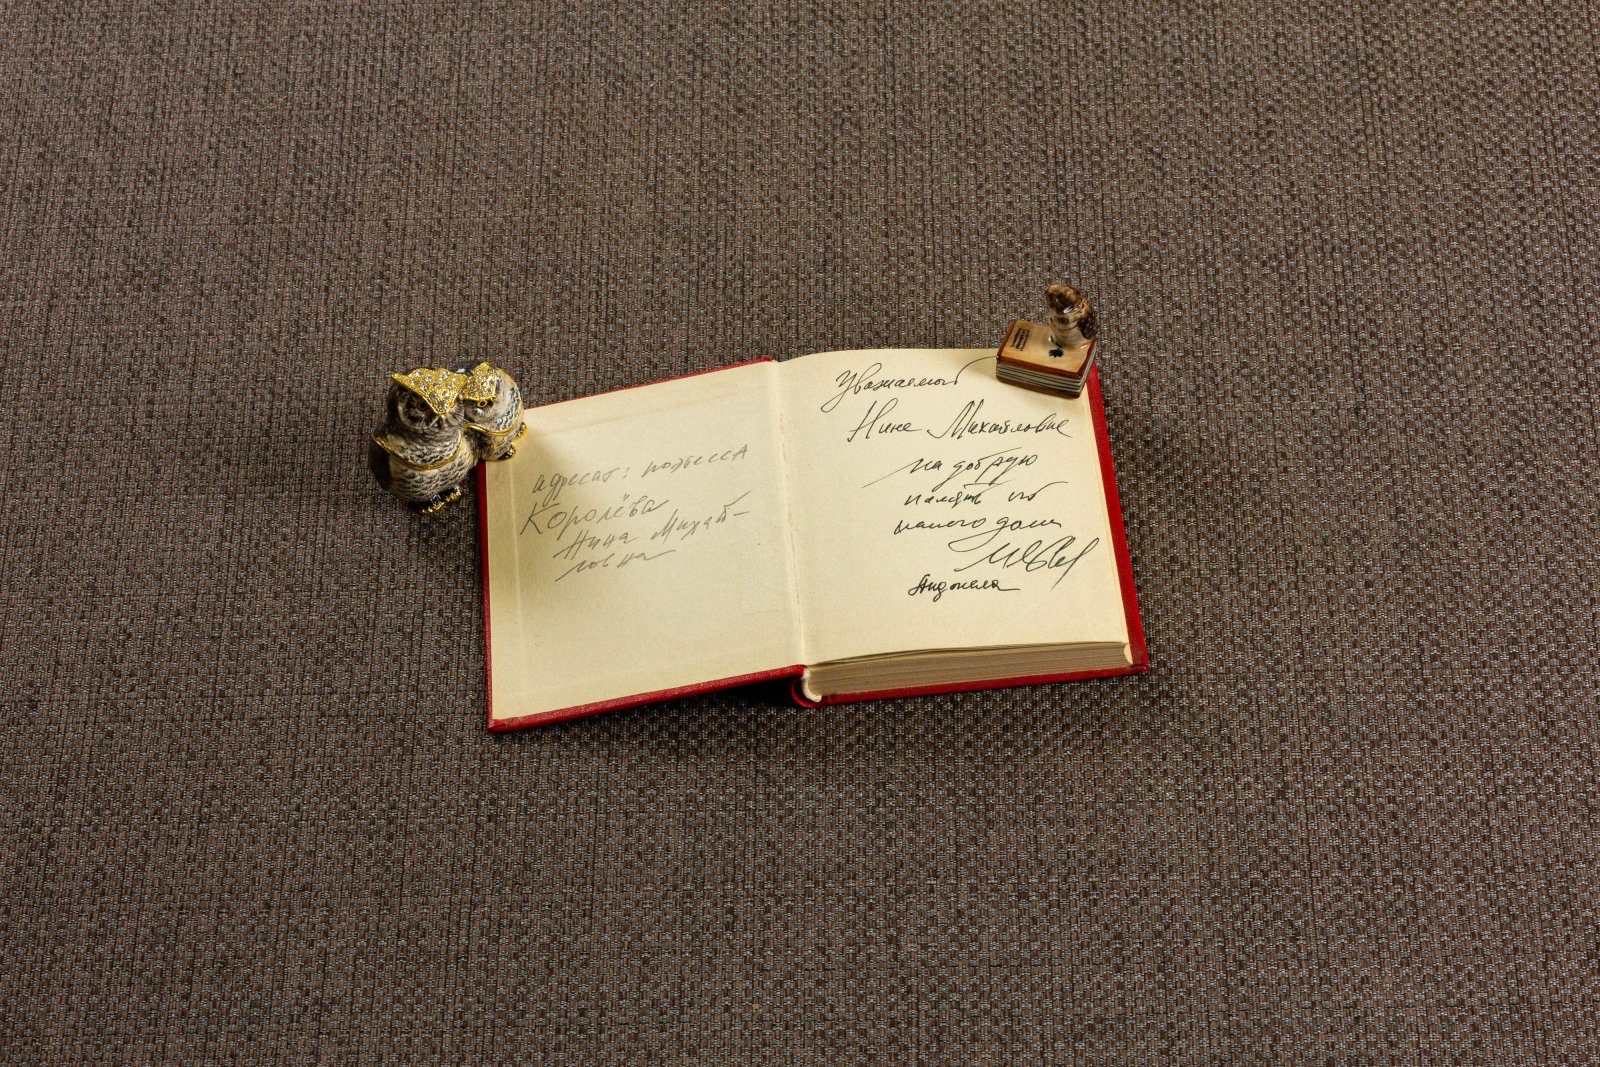 адресат: поэтесса
Королёва
Нина Михай-
ловна
Уважаемой
Нине Михайловне
на добрую
память от
нашего дома
Анжела